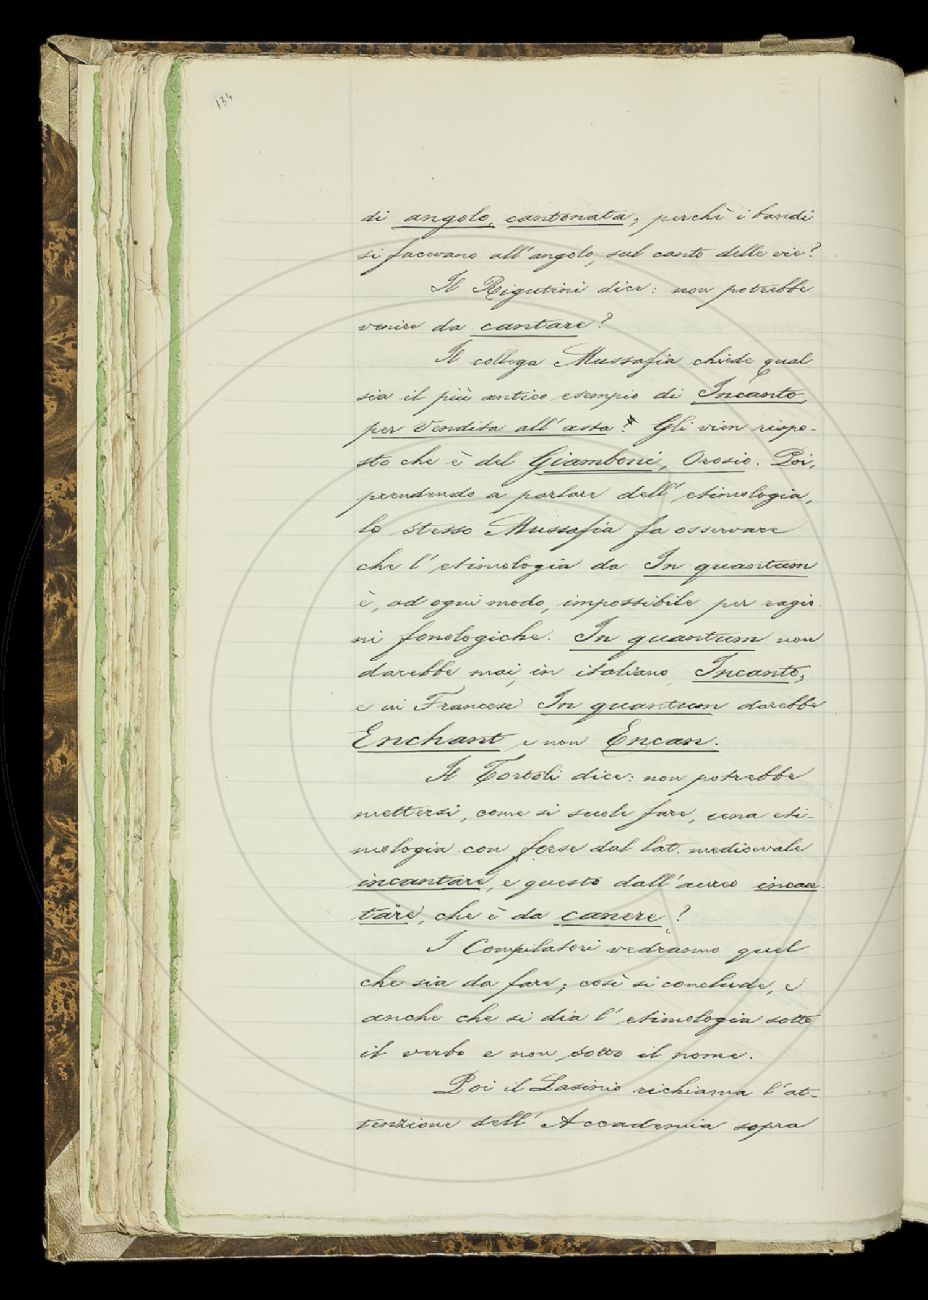 134
di angolo, cantonata, perchè i bandi
si facevano all'angolo, sul canto delle vie?
Il Rigutini dice: non potrebbe
venire da cantare?
Il collega Mussafia chiede qual
sia il più antico esempio di Incanto,
per Vendita all'asta? Gli vien rispo-
sto che è del Giamboni, Orosio. Poi,
prendendo a parlare dell'etimologia,
lo stesso Mussafia fa osservare
che l'etimologia da In quantum
è, ad ogni modo, impossibile per ragio-
ni fonologiche. In quantum non
darebbe mai, in italiano, Incanto,
e in Francese In quantum darebbe
Enchant e non Encan.
Il Tortoli dice: non potrebbe
mettersi, come si suole fare, una eti-
mologia con forse dal lat. medioevale
incantare, e questo dall'aureo incan-
tare, che è da canere?
I Compilatori vedranno quel
che sia da fare; così si conclude, e
anche che si dia l'etimologia sotto
il verbo e non sotto il nome.
Poi il Lasinio richiama l'at-
tenzione dell'Accademia sopra